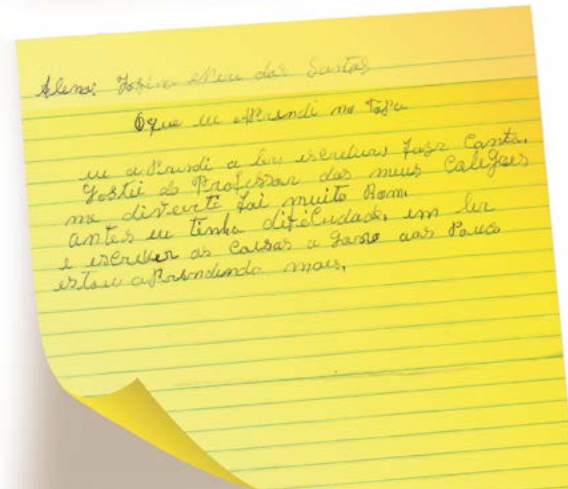 Alena: Josina dos Santos
O que eu aprendi no Topa
eu aprindi a ler escreture, fazer canta.
Gostei do Professor das meus calegaes
me diverti foi muito Bom.
antes eu tinha dificudade, em ler
e escrever as caisas a gora aos Pouco
estou aprendendo mais.